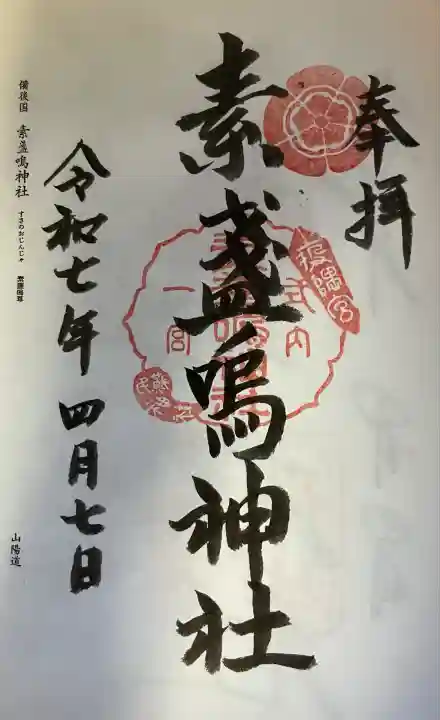 奉拝
素盞嗚神社
式内
一宮
疫隅宮
蘇民
令和七年 四月七日
備後国 素盞嗚神社 すさのおじんじゃ 素盞嗚尊
山陽道